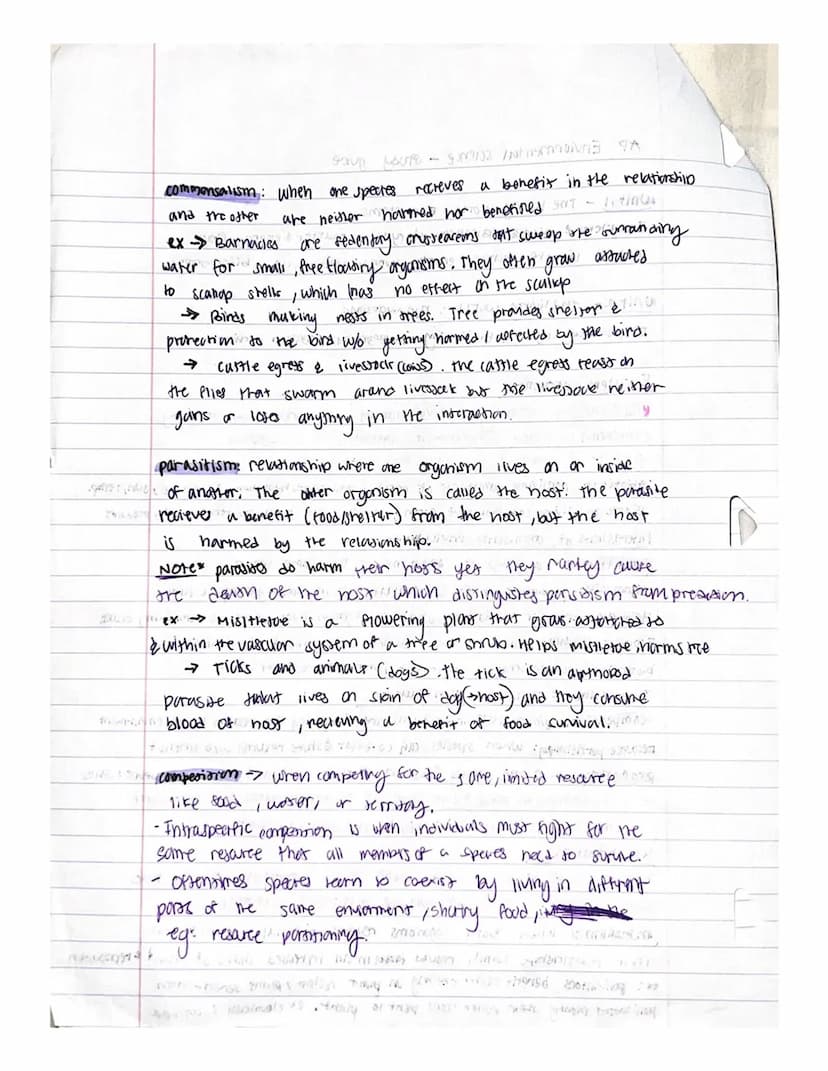 commensalism: when one species recieves a benefit in the relationship
and the other are neither harmed nor benefited
ex → Barnacles are sedentary crustaceans that sweep the surrounding
water for small, free floating organisms. They often grow attached
to scallop shells, which has no effect on the scallop
→ Birds making nests in trees. Tree provides shelter &
protection to the bird w/o getting harmed / affected by the bird.
→ cattle egress & livestock (cows). the cattle egress feast on
the flies that swarm around livestock but the livestock neither
gains or loses anything in the interaction.
parasitism: relationship where one organism lives on or inside
of another. The other organism is called the host. the parasite
recieves a benefit (food/shelter) from the host, but the host
is harmed by the relationship.
NOTE* parasites do harm their hosts yet they rarely cause
the death of the host which distinguishes parasitism from predation.
ex → Misltletoe is a flowering plant that grows attatched to
& within the vascular system of a tree or shrub. Helps mistletoe, harms tree
→ Ticks and animals (dogs). the tick is an arthropod
parasite that lives on skin of dog(→host) and they consume
blood of host, recieving a benefit of food survival.
competition → when competing for the same, limited resource
like food, water, or territory.
- Intraspecific competition is when individuals must fight for the
same resource that all members of a species need to survive.
- Oftentimes species learn to coexist by living in different
parts of the same environment, sharing food,
eg: resource partitioning.